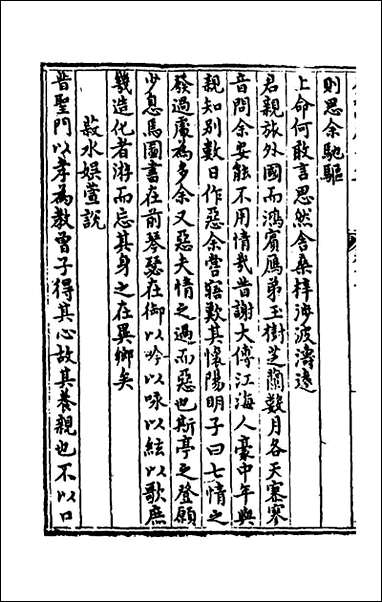 則思余馳驅
上命何敢言思然舍桑梓涉波濤遠
君親旅外國而鴻賓鴈弟玉樹芝蘭數月各天寒寒
音問余安能不用情哉昔謝大傅江海人豪中年與
親知別數日作惡余嘗竊歎其懷陽明子曰七情之
發過處為多余又惡夫情之過而惡也斯亭之登願
少息焉圖書在前琴瑟在御以吟以咏以絃以歌庶
幾造化者游而忘其身之在異鄉矣
菽水娛萱說
昔聖門以孝為教曾子得其心故其養親也不以口